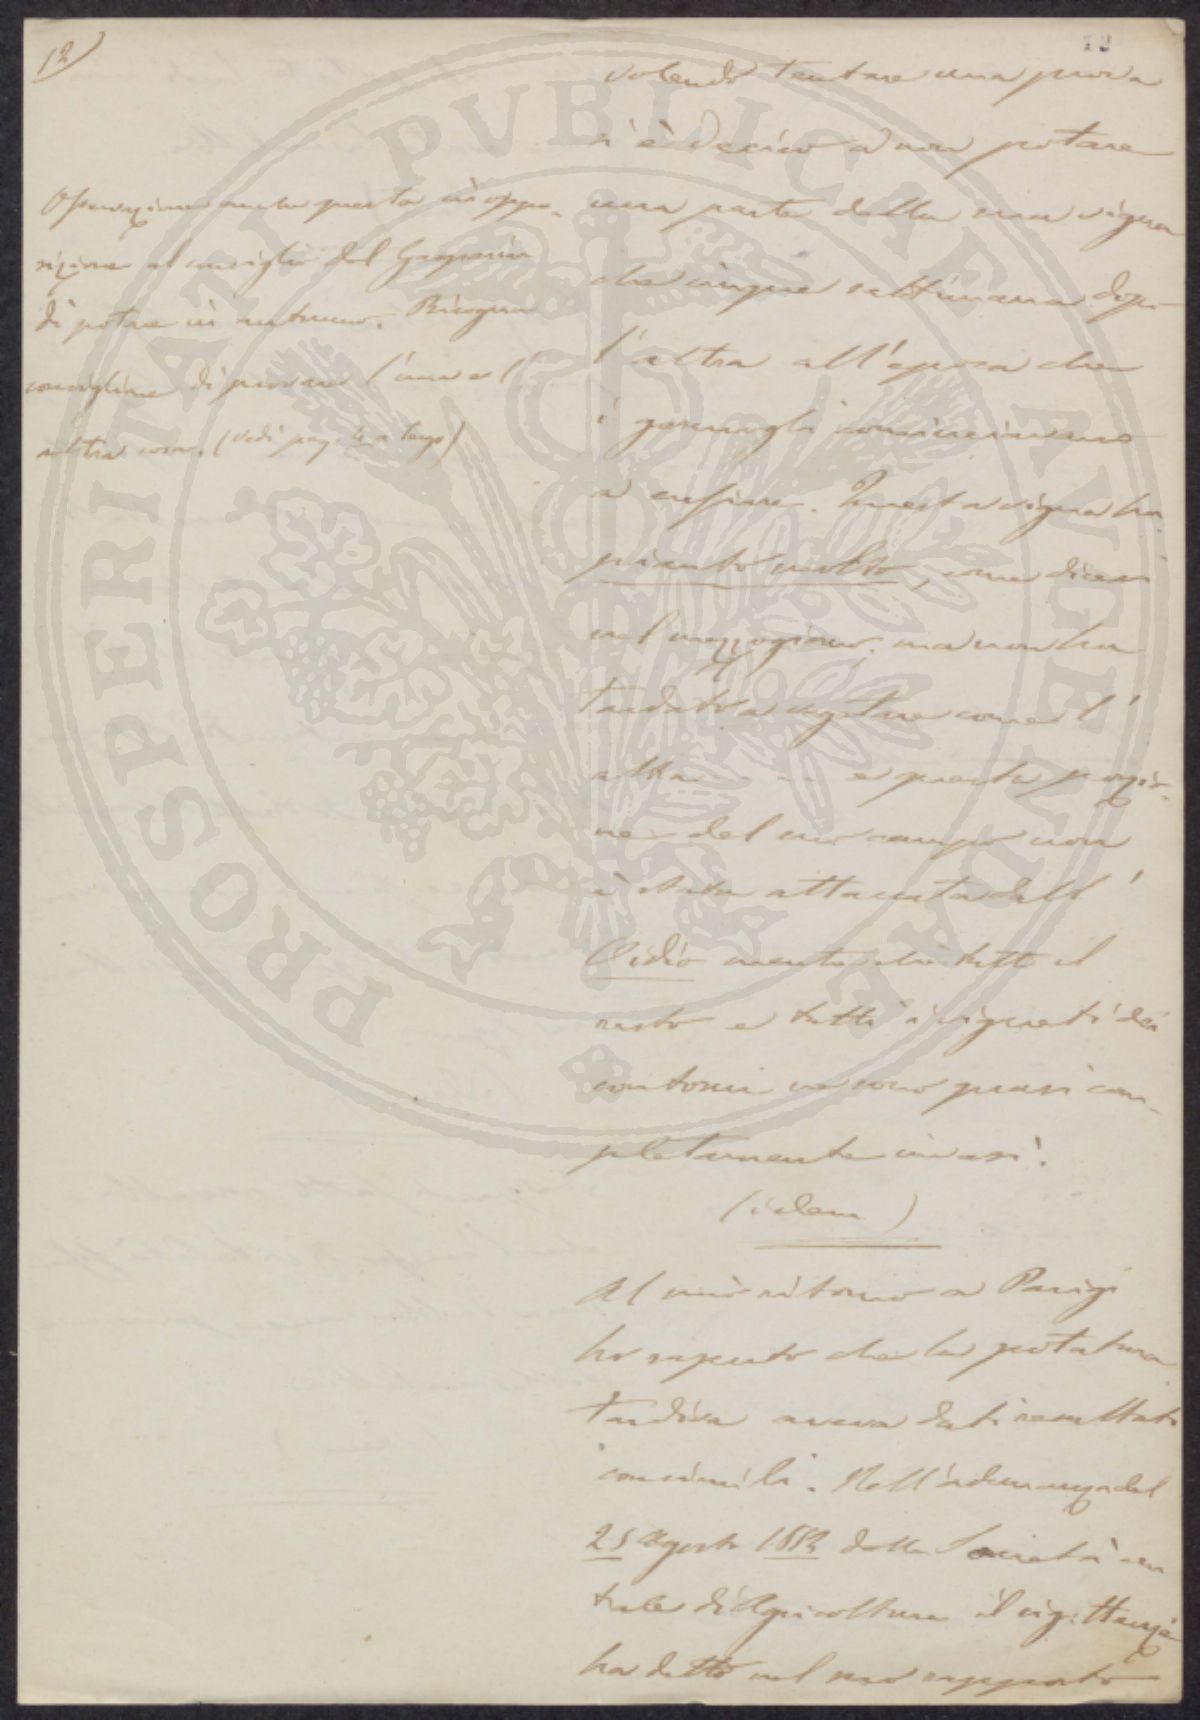 12)
12
Osservazione anche questa in oppo-
sizione al consiglio del Gasparin
di potare in autunno. Bisogna
consigliare di provare l'una e l'
altra cosa. (Vedi pag. 4 a tergo)
volendo tentare una prova
s'è deciso a non potare
una parte della sua vigna
che cinque settimane dopo
l'altra all'epoca che
i germogli cominciavano
a enfiare. Questa vigna ha
pianto molto, come dicesi
nel mezzogiorno; ma non ha
tardato a vegetare come l'
altra ... e questa porzio-
ne del suo campo non
è stata attaccata dall'
Oidio mentre che tutto il
resto e tutti i vigneti dei
contorni ne sono quasi com-
pletamente invasi.
(idem)
Al mio ritorno a Parigi
ho saputo che la potatura
tardiva aveva dati resultati
consimili. Nell'adunanza del
25 Agosto 1852 della Società cen
trale di Agricoltura il sig.
ha detto nel suo rapporto
PROSPERITATI PVBLICAE AVGENDAE